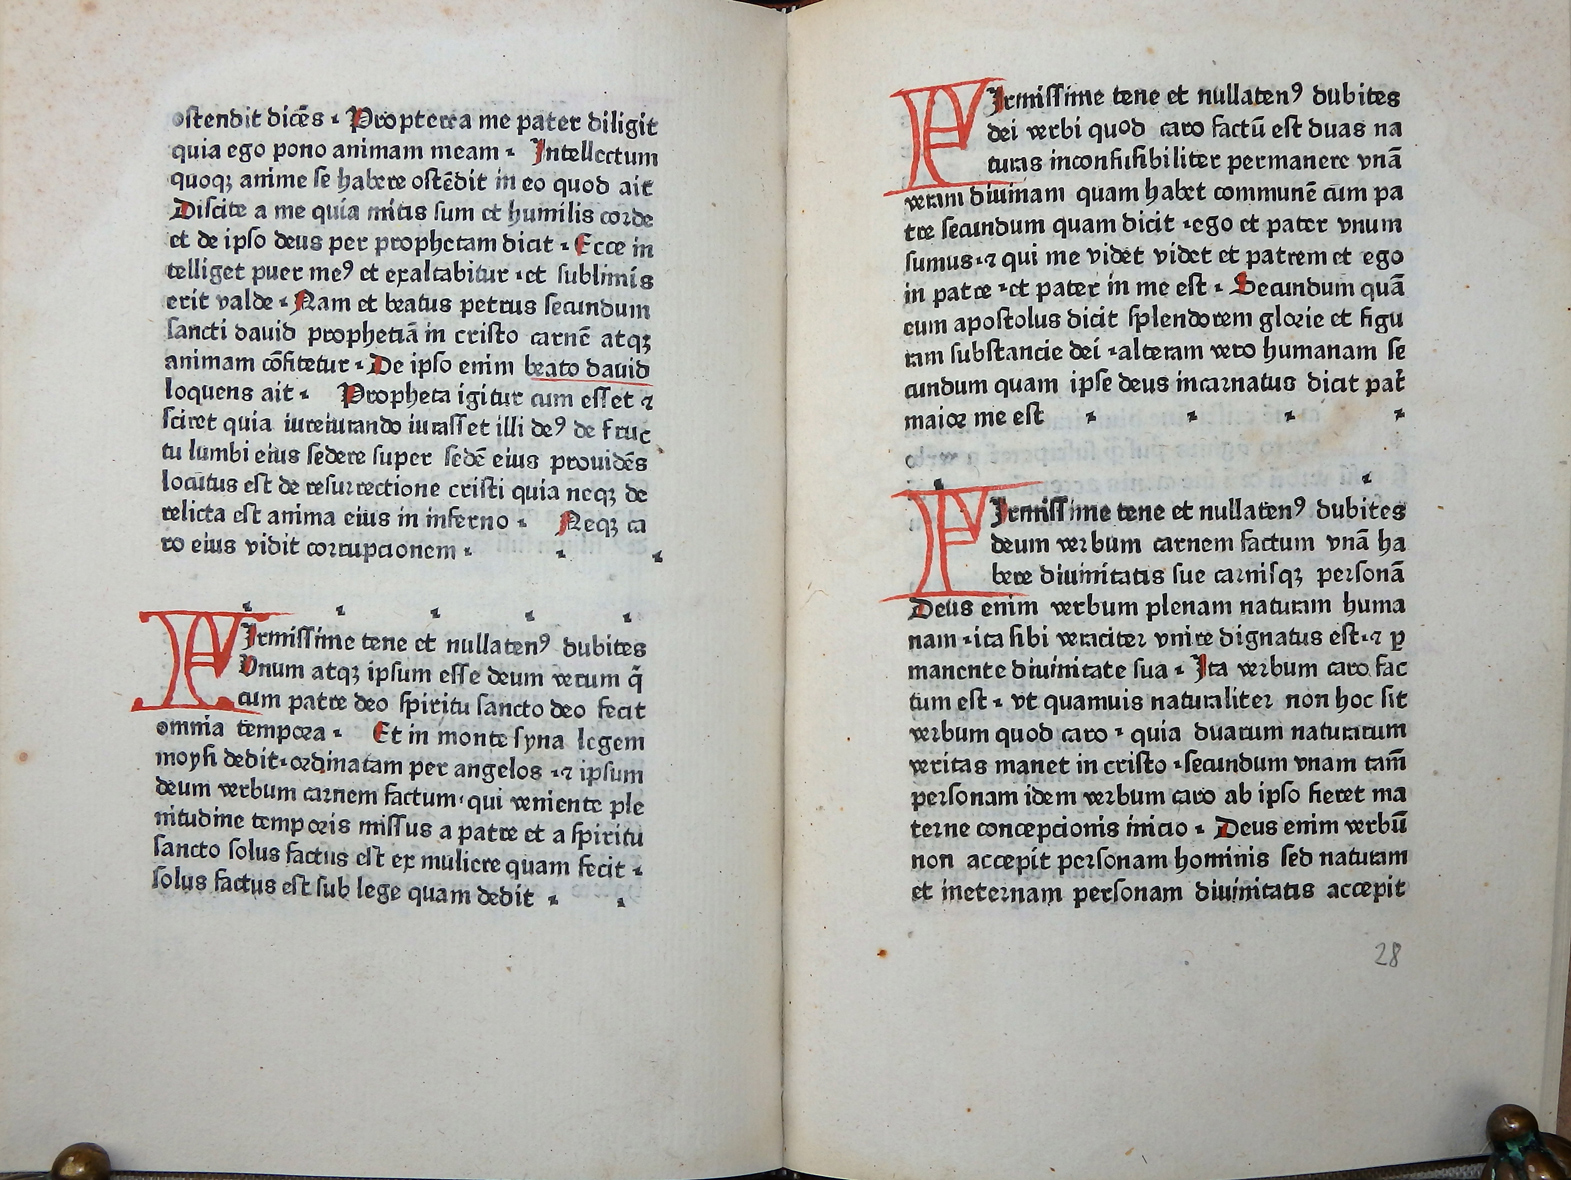 ostendit dicēs · Propterea me pater diligit
quia ego pono animam meam · Intellectum
quoqꝫ anime se habere ostēdit in eo quod ait
Discite a me quia mitis sum et humilis corde
et de ipso deus per prophetam dicit · Ecce in
telliget puer meꝰ et exaltabitur · et sublimis
erit valde · Nam et beatus petrus secundum
sancti dauid prophetiā in cristo carnē atqꝫ
animam cōfitetur · De ipso enim beato dauid
loquens ait · Propheta igitur cum esset ⁊
sciret quia iureiurando iurasset illi deꝰ de fruc
tu lumbi eius sedere super sedē eius prouidēs
locutus est de resurrectione cristi quia neqꝫ de
relicta est anima eius in inferno · Neqꝫ ca
ro eius vidit corrupcionem ·
FIrmissime tene et nullatenꝰ dubites
Vnum atqꝫ ipsum esse deum verum q̄
cum patre deo spiritu sancto deo fecit
omnia tempora · Et in monte syna legem
moysi dedit · ordinatam per angelos · ⁊ ipsum
deum verbum carnem factum · qui veniente ple
nitudine temporis missus a patre et a spiritu
sancto solus factus est ex muliere quam fecit ·
solus factus est sub lege quam dedit ·
FIrmissime tene et nullatenꝰ dubites
dei verbi quod caro factū est duas na
turas inconfusibiliter permanere vnā
veram diuinam quam habet communē cum pa
tre secundum quam dicit · ego et pater vnum
sumus · ⁊ qui me videt videt et patrem et ego
in patre · et pater in me est · Secundum quā
eum apostolus dicit splendorem glorie et figu
ram substancie dei · alteram vero humanam se
cundum quam ipse deus incarnatus dicit pat̄
maior me est
FIrmissime tene et nullatenꝰ dubites
deum verbum carnem factum vnā ha
bere diuinitatis sue carnisqꝫ personā
Deus enim verbum plenam naturam huma
nam · ita sibi veraciter vnire dignatus est · ⁊ ꝑ
manente diuinitate sua · Ita verbum caro fac
tum est · vt quamuis naturaliter non hoc sit
verbum quod caro · quia duarum naturarum
veritas manet in cristo · secundum vnam tam̄
personam idem verbum caro ab ipso fieret ma
terne concepcionis inicio · Deus enim verbū
non accepit personam hominis sed naturam
et ineternam personam diuinitatis accepit
28